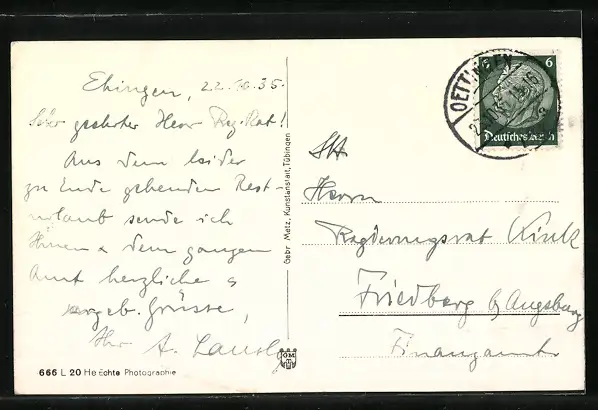 Ehingen, 22.10.35.
Sehr geehrter Herr Reg. Rat!
Aus dem leider
zu Ende gehenden Rest-
urlaub sende ich
Ihnen & dem ganzen
Amt herzliche &
ergeb. Grüsse,
Ihr A.
Gebr. Metz, Kunstanstalt, Tübingen
Herrn
Regierungsrat
Friedberg b/Augsburg
Finanzamt
OETTINGEN
6
Deutsches Reich
GM
666 L 20 He Echte Photographie